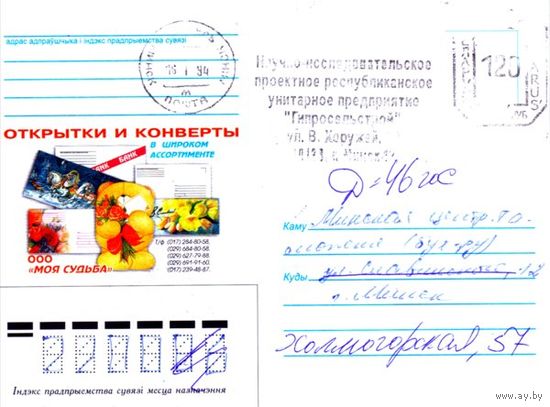 адрас адпраўшчыка і індэкс прадпрыемства сувязі
МИНСК
16 1 94
ПОШТА
Научно-исследовательское
проектное республиканское
унитарное предприятие
"Гипросельстрой"
ул. В. Хоружей,
г. Минск
120
РУБ
BELARUS
ОТКРЫТКИ И КОНВЕРТЫ
В ШИРОКОМ
АССОРТИМЕНТЕ
БАНК БАНК
Т/ф (017) 284-80-58,
(029) 684-80-58,
(029) 627-79-88,
(029) 691-91-60,
(017) 239-48-87.
ООО
"МОЯ СУДЬБА"
Д-46
Каму Минская центр. та
можня
Куды ул.
г. Минск
Холмогорская, 57
Індэкс прадпрыемства сувязі месца назначэння
www.ay.by